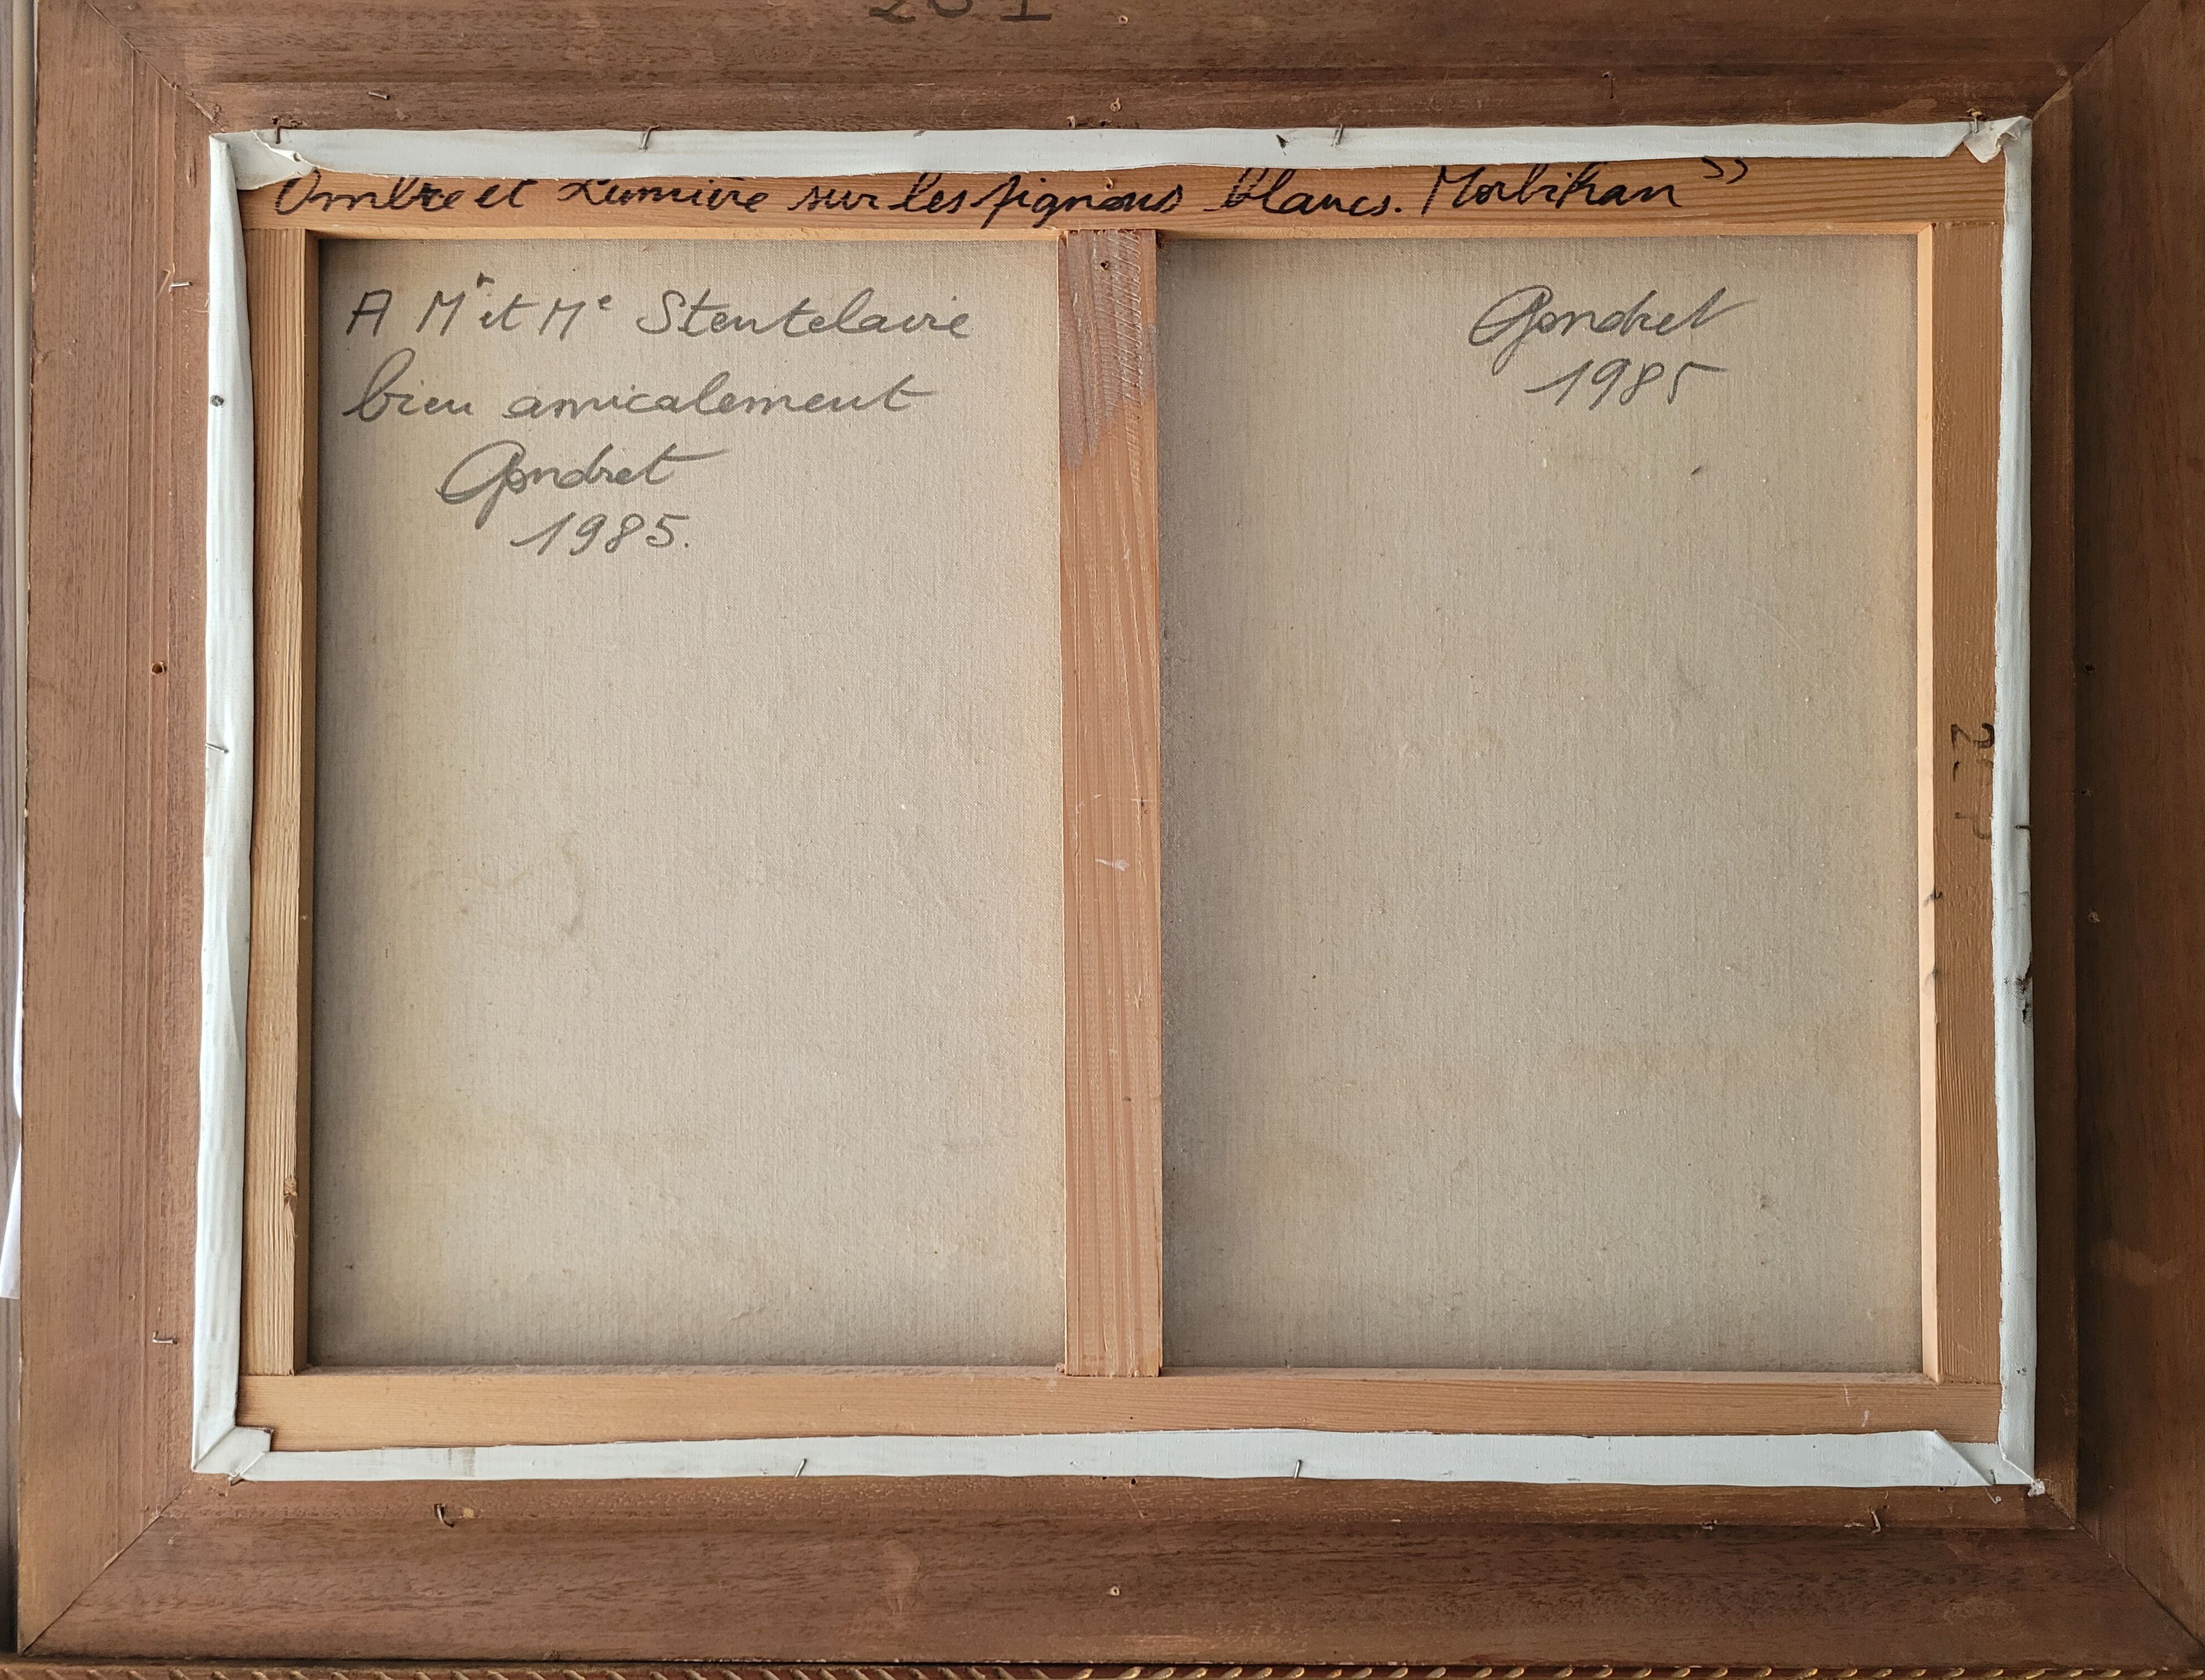 Ombre et Lumière sur les pignons blancs. Morbihan"
A Mr et Me Stentelaire
bien amicalement
Gondret
1985.
Gondret
1985